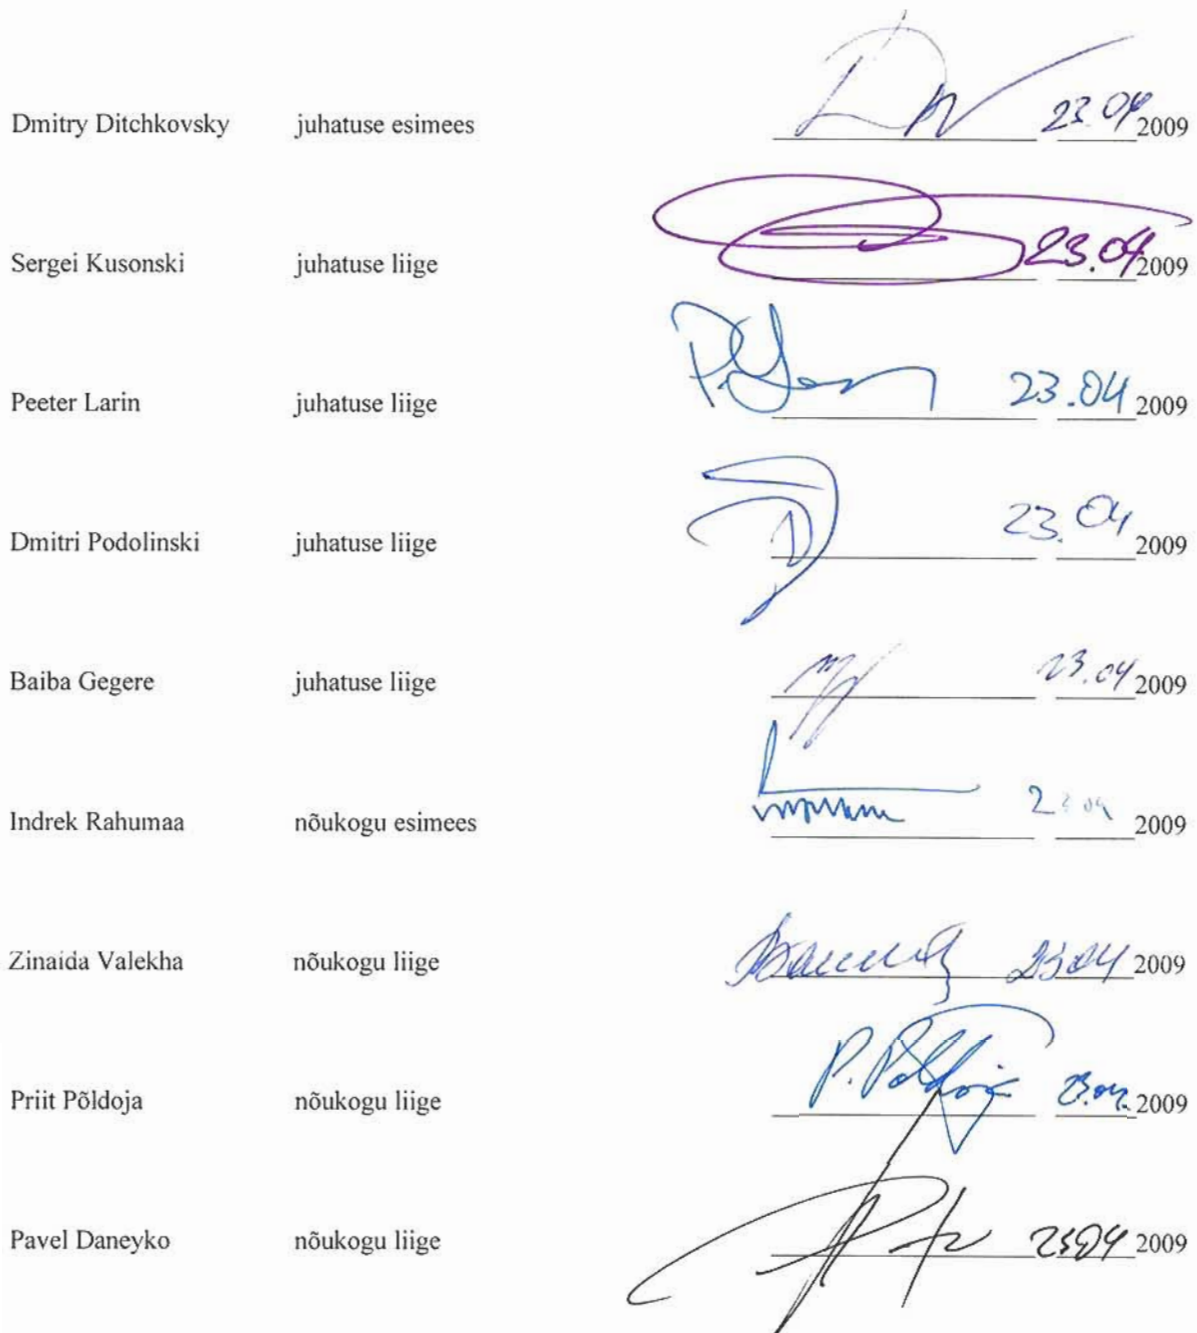 Dmitry Ditchkovsky juhatuse esimees 23.04 2009
Sergei Kusonski juhatuse liige 23.04 2009
Peeter Larin juhatuse liige 23.04 2009
Dmitri Podolinski juhatuse liige 23.04 2009
Baiba Gegere juhatuse liige 23.04 2009
Indrek Rahumaa nõukogu esimees 2009
Zinaida Valekha nõukogu liige 23.04 2009
Priit Põldoja nõukogu liige P. Põldoja 23.04. 2009
Pavel Daneyko nõukogu liige 2304 2009